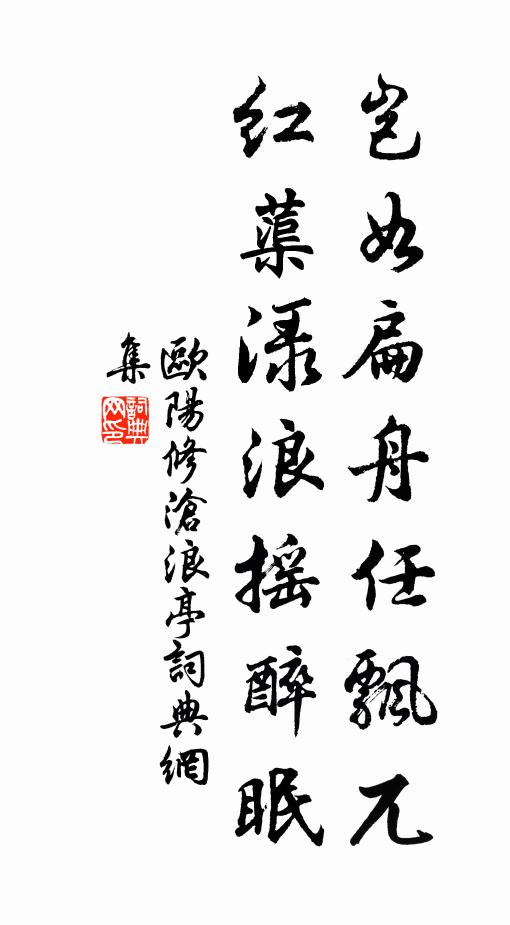 豈如扁舟任飄兀
紅蕖渌浪搖醉眠
歐陽修滄浪亭詞典網
集
詞典网印